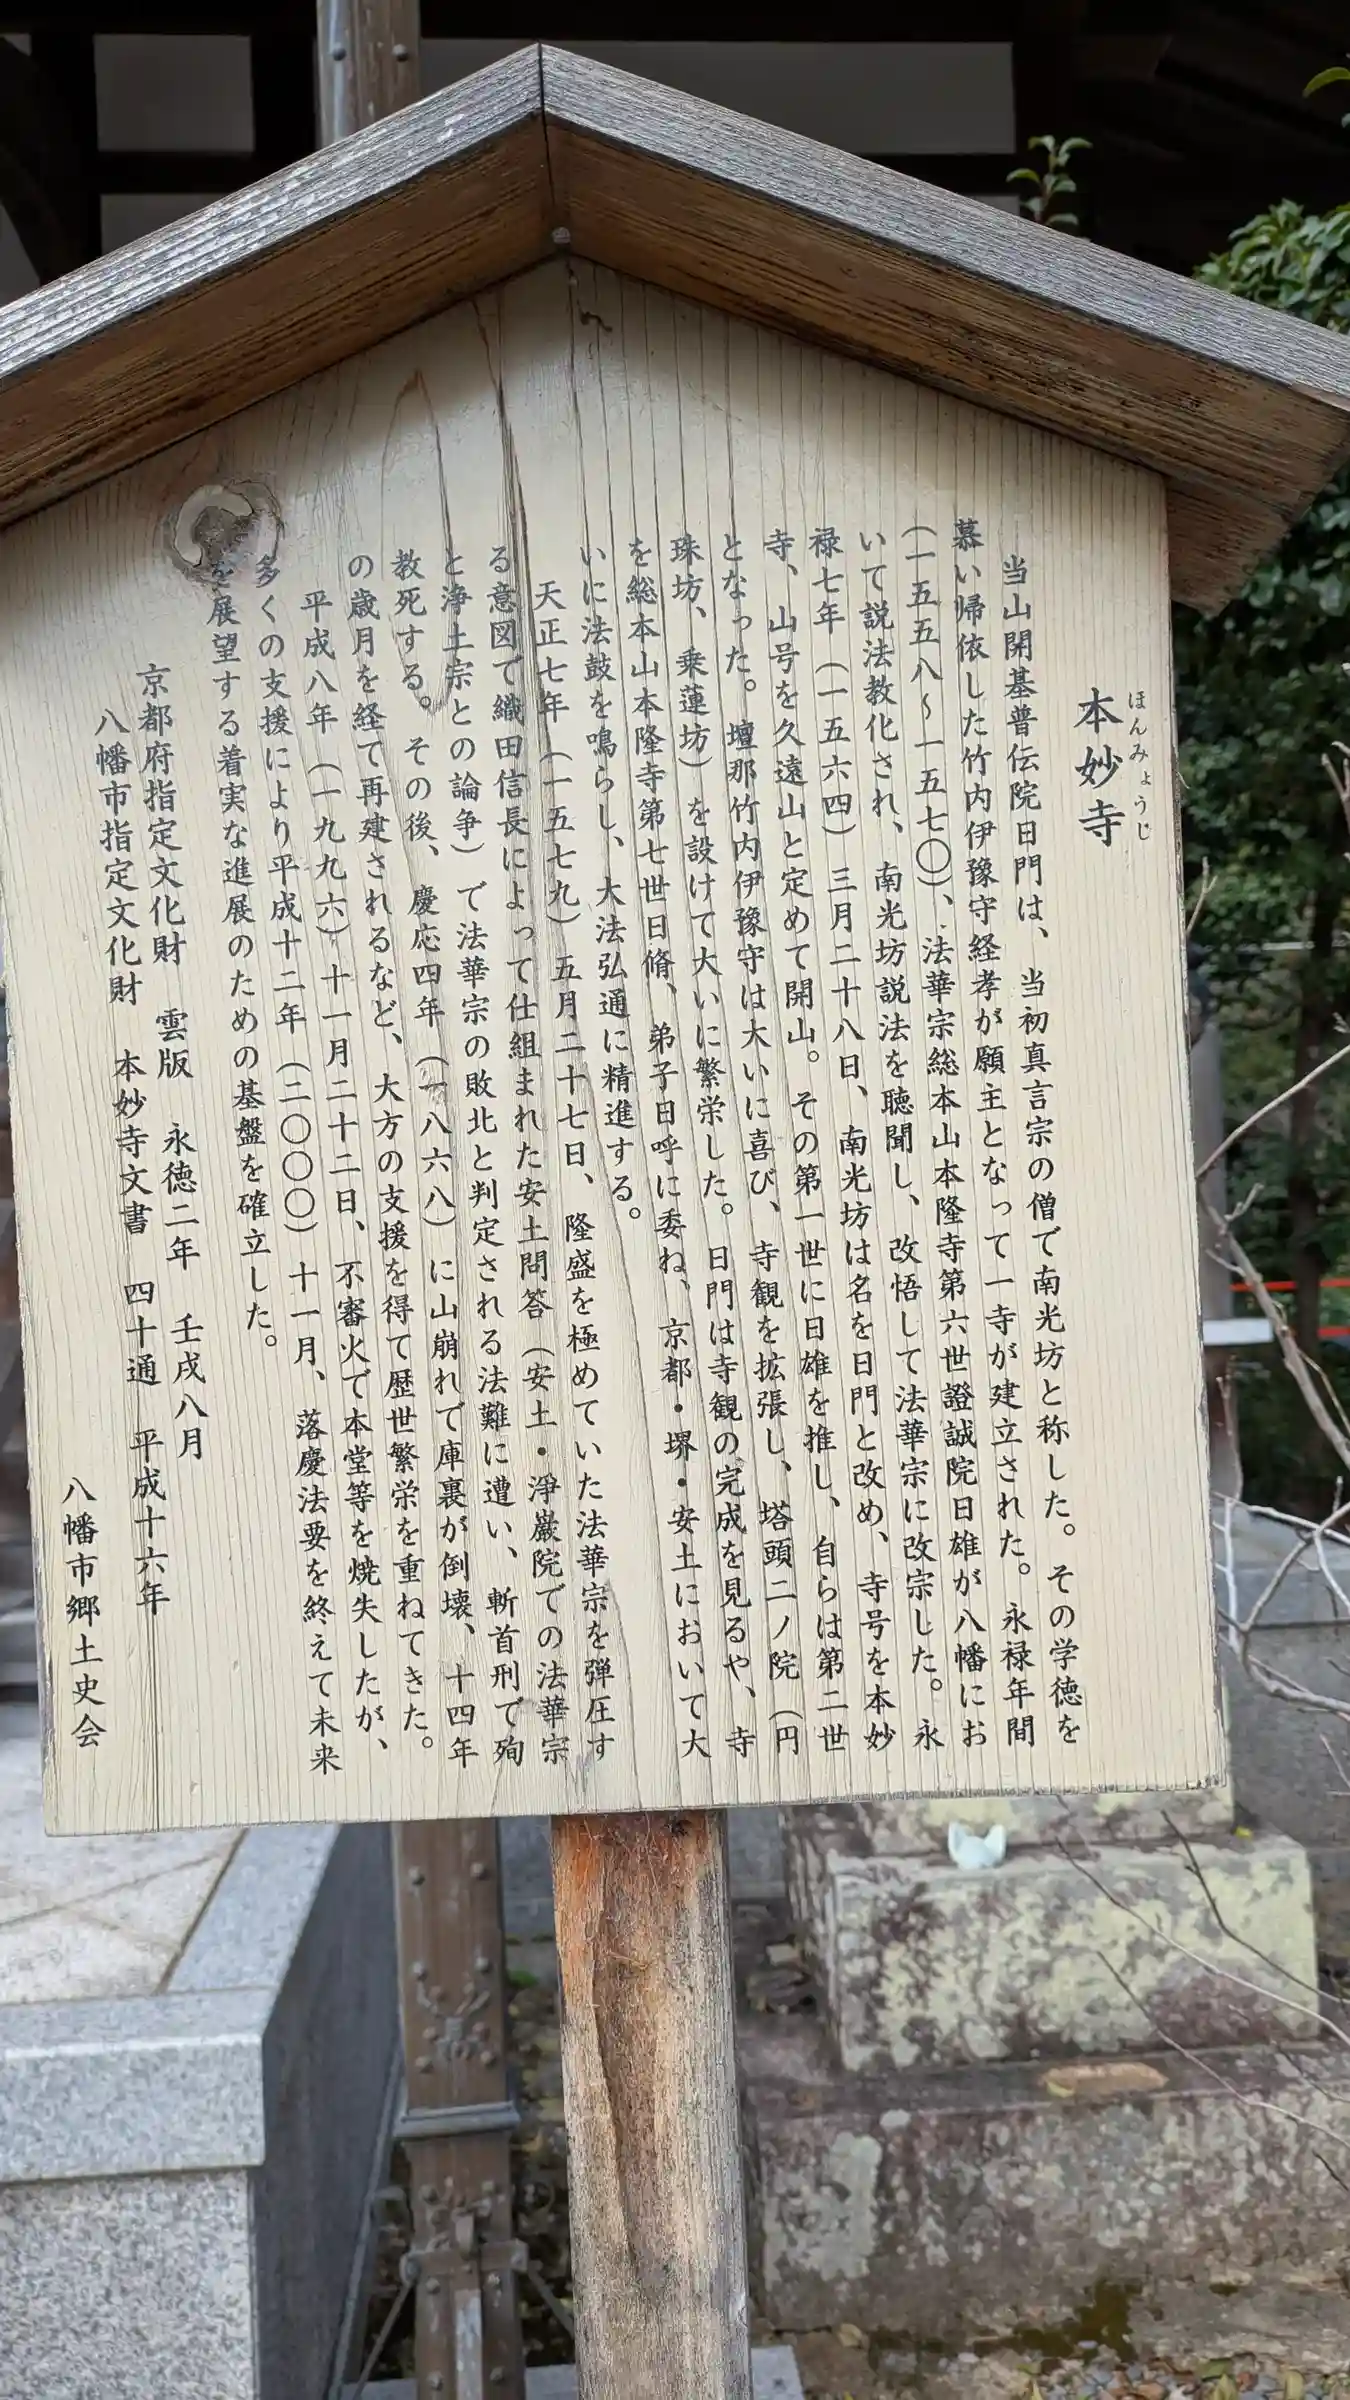 本妙寺
ほんみょうじ
当山開基普伝院日門は、当初真言宗の僧で南光坊と称した。その学徳を
慕い帰依した竹内伊豫守経孝が願主となって一寺が建立された。永禄年間
(一五五八~一五七〇)、法華宗総本山本隆寺第六世證誠院日雄が八幡にお
いて説法教化され、南光坊説法を聴聞し、改悟して法華宗に改宗した。永
禄七年(一五六四)三月二十八日、南光坊は名を日門と改め、寺号を本妙
寺、山号を久遠山と定めて開山。その第一世に日雄を推し、自らは第二世
となった。壇那竹内伊豫守は大いに喜び、寺観を拡張し、塔頭二ノ院(円
珠坊、乗蓮坊)を設けて大いに繁栄した。日門は寺観の完成を見るや、寺
を総本山本隆寺第七世日脩、弟子日呼に委ね、京都・堺・安土において大
いに法鼓を鳴らし、大法弘通に精進する。
天正七年(一五七九)五月二十七日、隆盛を極めていた法華宗を弾圧す
る意図で織田信長によって仕組まれた安土問答(安土・淨巌院での法華宗
と浄土宗との論争)で法華宗の敗北と判定される法難に遭い、斬首刑で殉
教死する。その後、慶応四年(一八六八)に山崩れで庫裏が倒壊、十四年
の歳月を経て再建されるなど、大方の支援を得て歴世繁栄を重ねてきた。
平成八年(一九九六)十一月二十二日、不審火で本堂等を焼失したが、
多くの支援により平成十二年(二〇〇〇)十一月、落慶法要を終えて未来
を展望する着実な進展のための基盤を確立した。
京都府指定文化財 雲版 永徳二年 壬戌八月
八幡市指定文化財 本妙寺文書 四十通 平成十六年
八幡市郷土史会